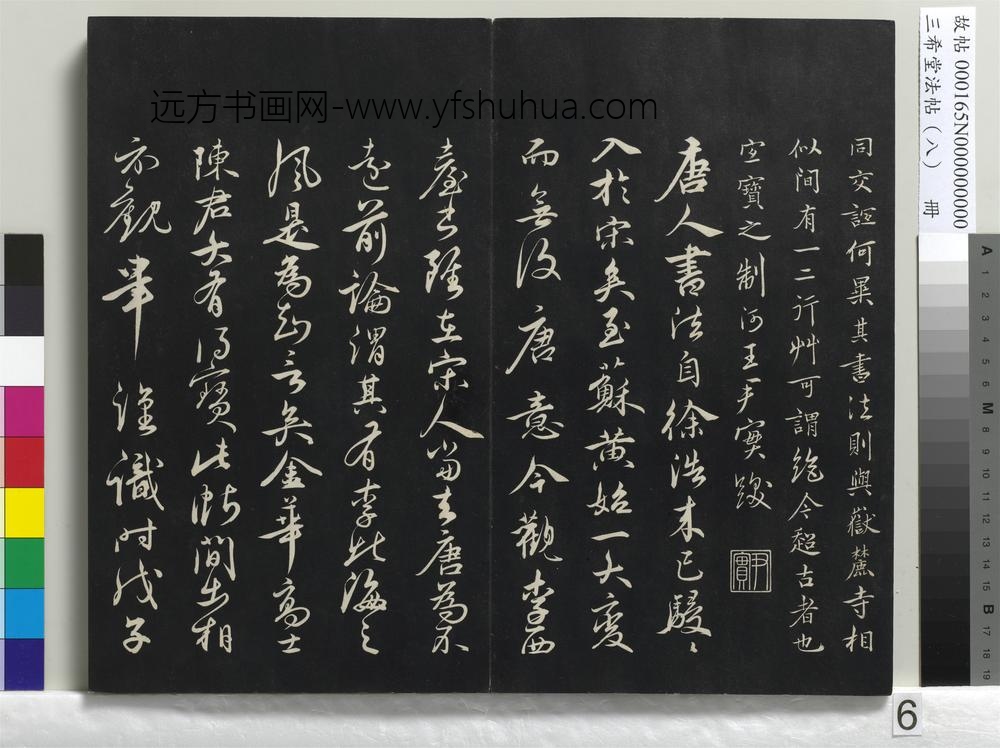 同交誣何異其書法則與嶽麓寺相
似間有一二行艸可謂絶今超古者也
宝寶之 制河王手實跋
唐人書法自徐浩末已駸〻
入於宋矣至蘇黄始一大變
而無復唐意今觀李西
臺书雖在宋人當去唐為不
遠前論謂其有李北海之
風是為知言矣金華高士
陳君大有得寶此帖間出相
示觀畢謹識时戊子
故帖 000165N000000000
三希堂法帖（八） 冊
远方书画网-www.yfshuhua.com
6
A 1 2 3 4 5 6 M 8 9 10 11 12 13 14 15 B 17 18 19